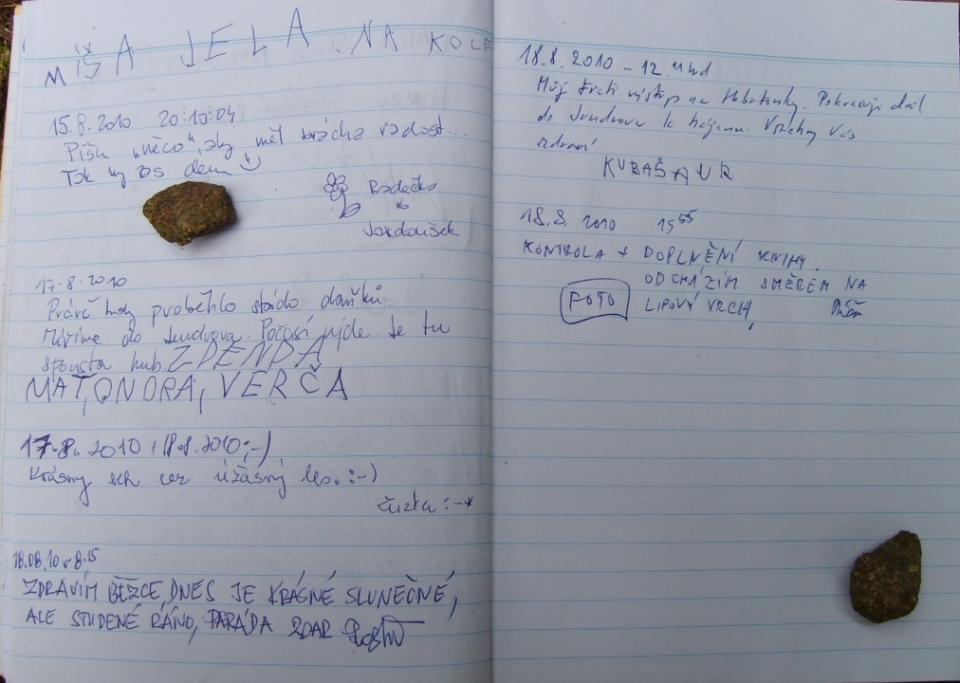 MÍŠA JELA NA KOLE
15.8.2010 20:10:04
Píšu „něco“, aby měl brácha radost...
Tak
Radečka
17.8.2010
Právě tudy proběhlo stádo daňků
Míříme do Sendrova. Počasí ujde. Je tu
spousta hub. ZDENDA
MAŤ, ONDRA, VERČA
17.8.2010 + 18.8.2010 ;-)
Krásny beh cez úžásný les. :-)
Zuzka :-*
18.08.10 v 8.15
ZDRAVÍM BĚŽCE, DNES JE KRÁSNÉ SLUNEČNÉ,
ALE STUDENÉ RÁNO, PARÁDA ZDAR
18.8.2010 - 12.
Můj třetí výstup na Pokračuji dál
do k hájemu. Všechny Vás
zdraví
KUBAŠAUR
18.8. 2010 15 55
KONTROLA + DOPLNĚNÍ KNIHY.
ODCHÁZÍM SMĚREM NA
FOTO LIPOVÝ VRCH,